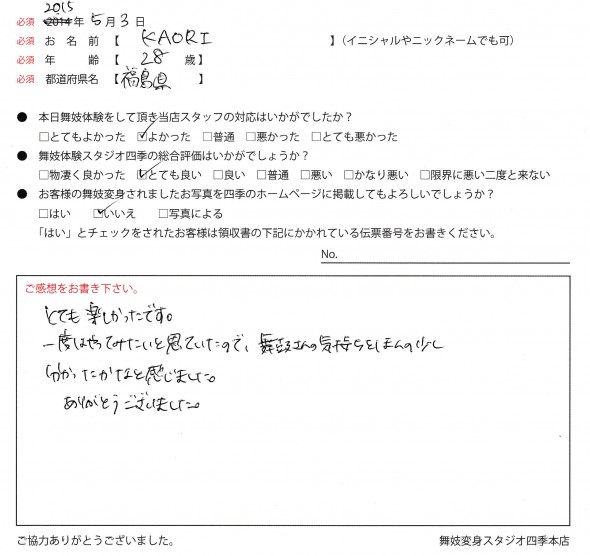 2015
必須 2014年 5月 3日
必須 お 名 前【 KAORI 】(イニシャルやニックネームでも可)
必須 年 齢【 28 歳】
必須 都道府県名【福島県 】
● 本日舞妓体験をして頂き当店スタッフの対応はいかがでしたか?
□とてもよかった ☑よかった □普通 □悪かった □とても悪かった
● 舞妓体験スタジオ四季の総合評価はいかがでしょうか?
□物凄く良かった ☑とても良い □良い □普通 □悪い □かなり悪い □限界に悪い二度と来ない
● お客様の舞妓変身されましたお写真を四季のホームページに掲載してもよろしいでしょうか?
□はい ☑いいえ □写真による
「はい」とチェックをされたお客様は領収書の下記にかかれている伝票番号をお書きください。
No.
ご感想をお書き下さい。
とても楽しかったです。
一度はやってみたいと思っていたので、舞妓さんの気持ちをほんの少し
分かったかなと感じました。
ありがとうございました。
ご協力ありがとうございました。
舞妓変身スタジオ四季本店